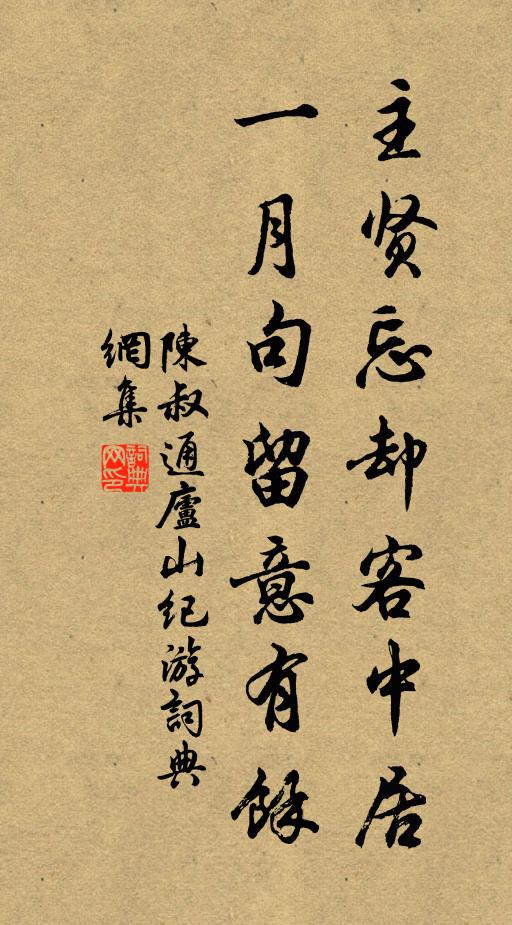 主贤忘却客中居
一月句留意有餘
陳叔通廬山纪游詞典
網集
詞典网印